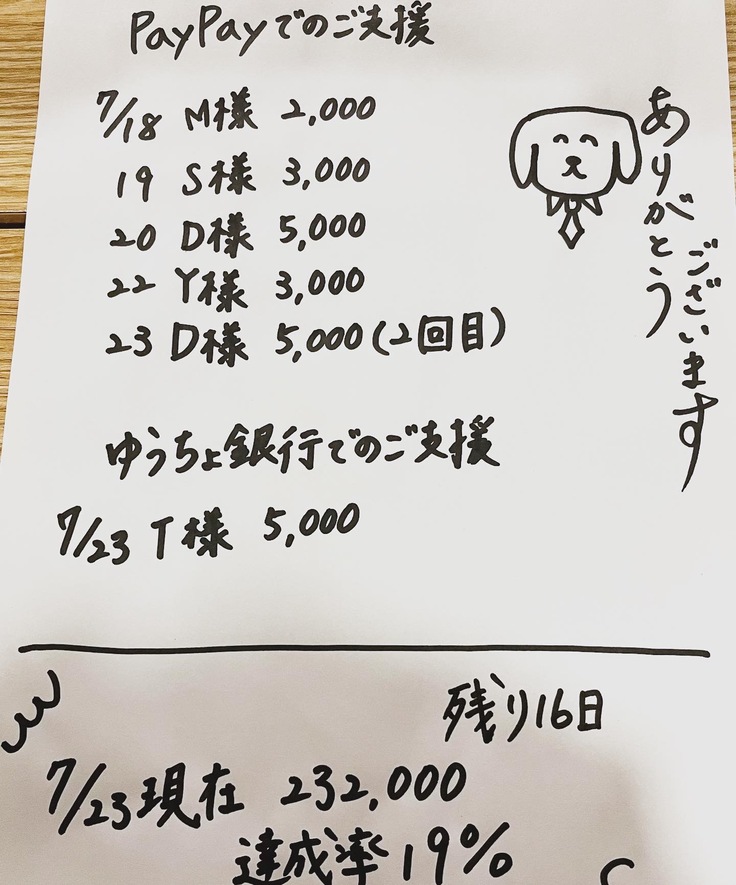 PayPayでのご支援
7/18 M様 2,000
19 S様 3,000
20 D様 5,000
22 Y様 3,000
23 D様 5,000(2回目)
ありがとう
ございます
ゆうちょ銀行でのご支援
7/23 T様 5,000
残り16日
7/23現在 232,000
達成率19%